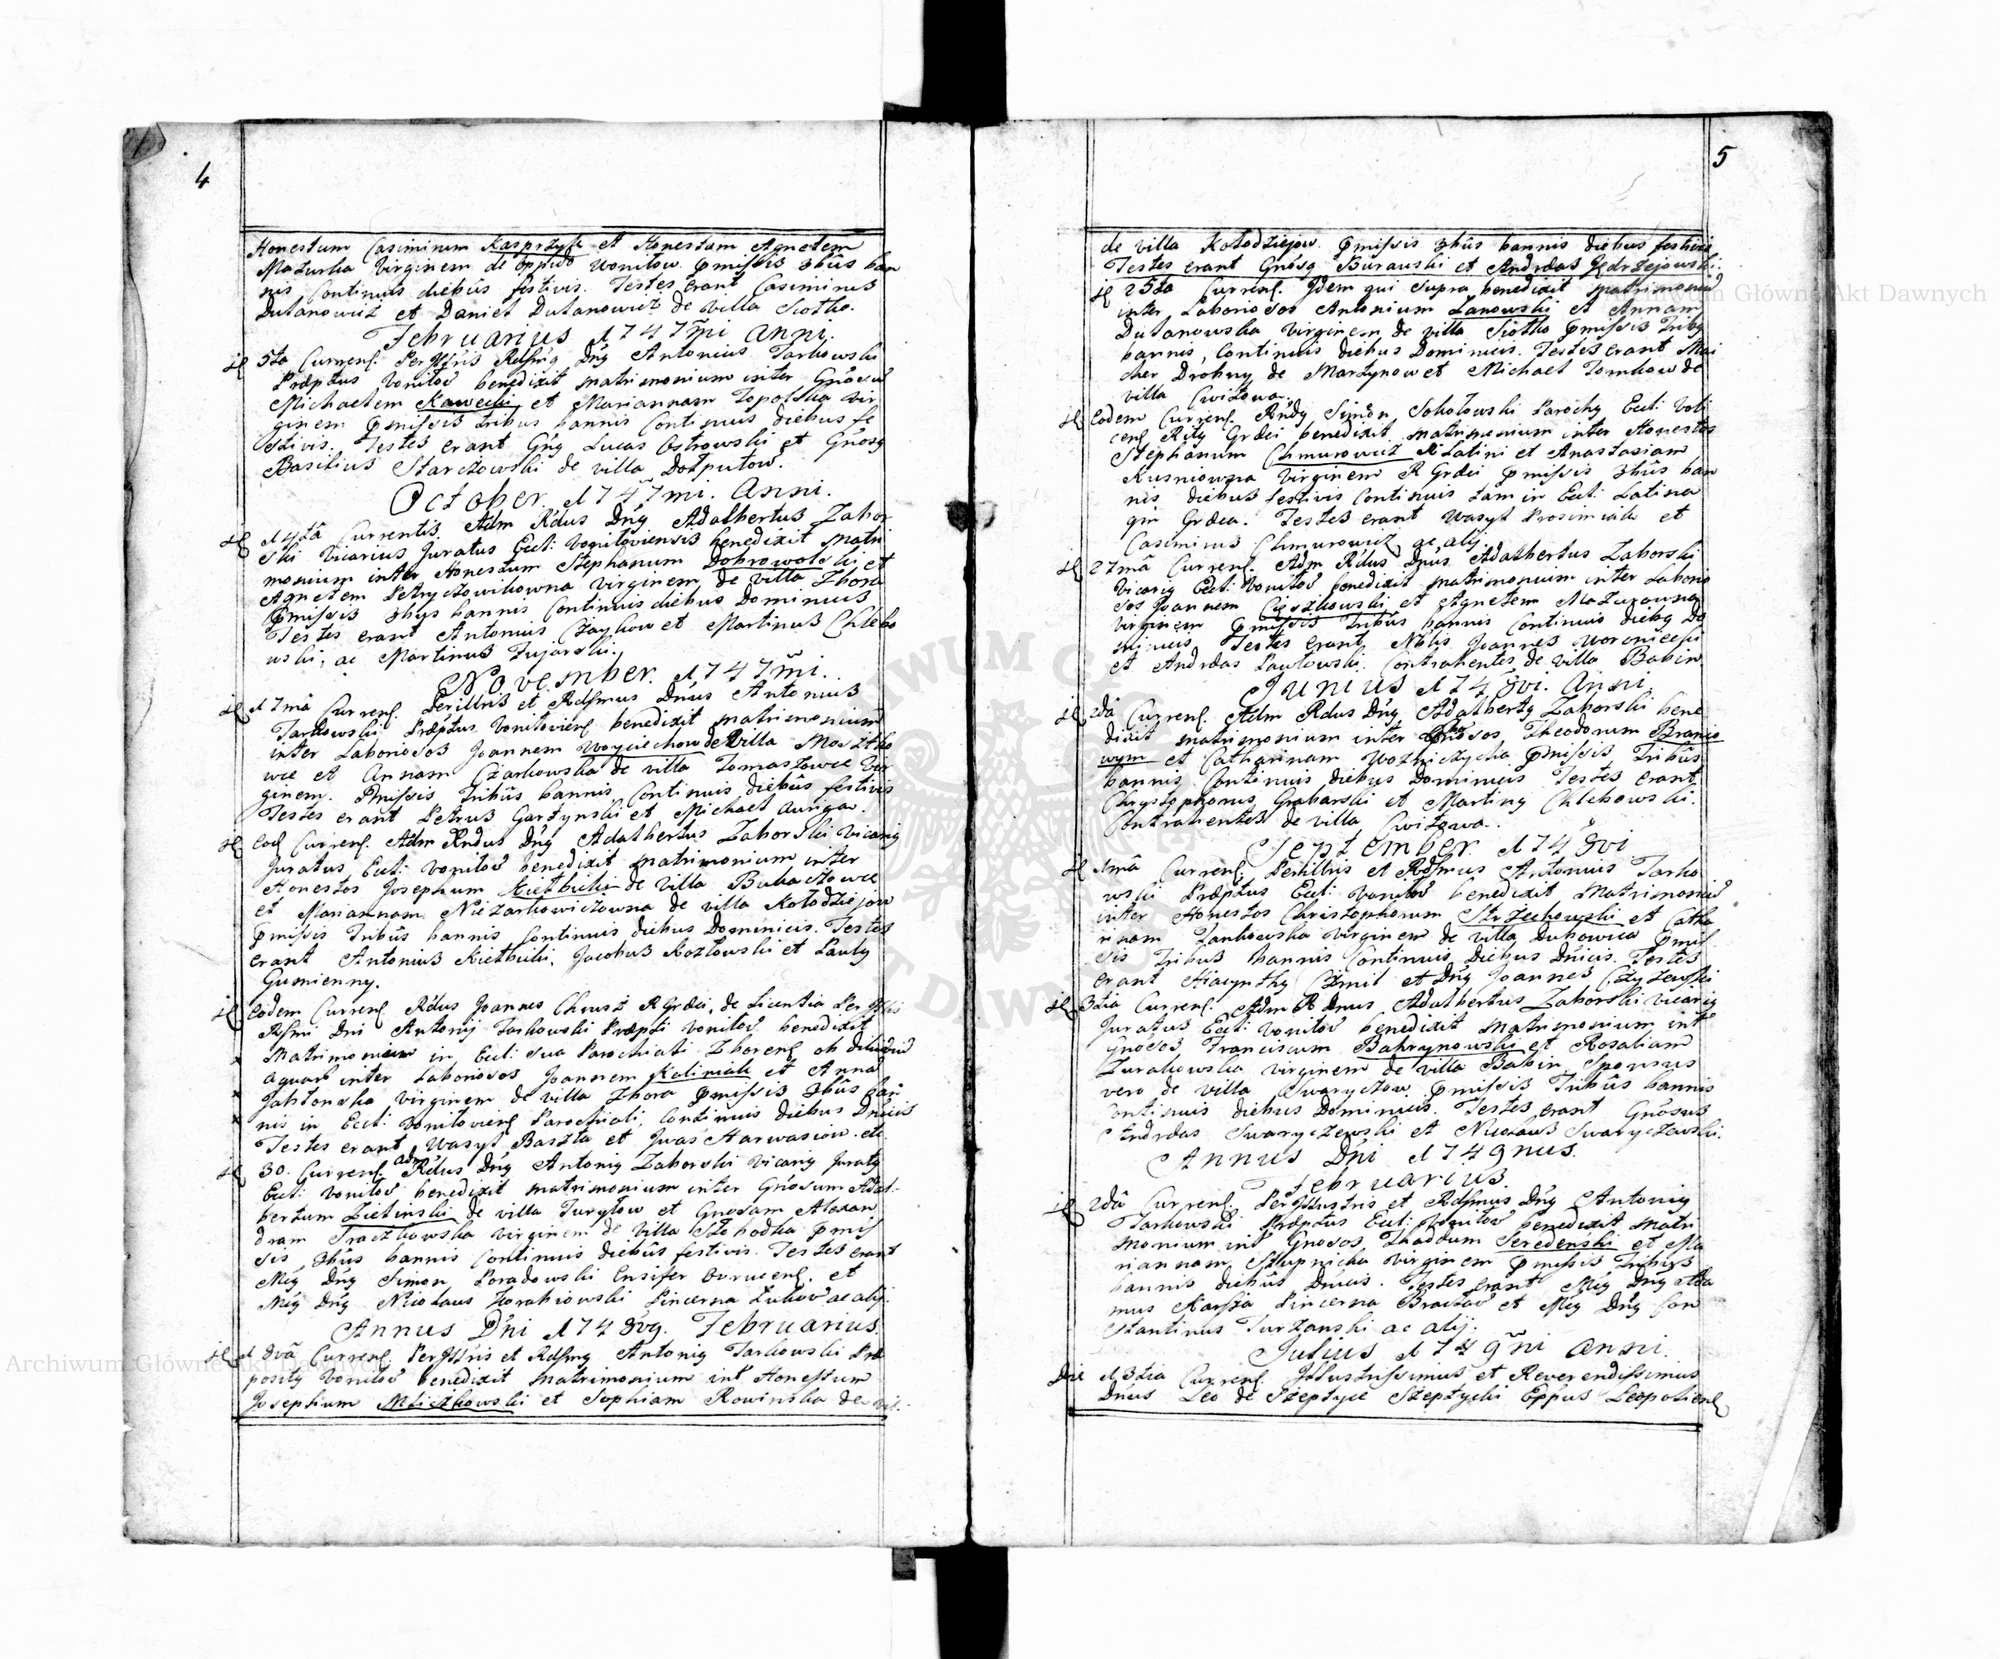 4
Honestum Casimirum Kasprzyk et Honestam Agnetem
Mazurka Virginem de Oppido Wonitow. Pmissis 3bûs ban
nis Continuis diebus festivis. Testes Erant Casimirus
Dulanowicz et Daniel Dulanowicz de Villa Siolko.
Februarius 1747mi Anni.
5ta Curren. PerIllris Rdsmg Dng Antonius Tarkowski
Præptus Vonitov benedixit matrimonium inter Gnosu
Michaelem Kawecki et Mariannam Topolska Vir
ginem Pmissis tribus bannis Continuis diebus fe
stivis. Testes Erant Gng Lucas Ostrowski et Gnosg
Basilius Starczowski de villa Dolputow.
October. 1747mi. Anni.
14ta Currentis. Adm Rdus Dng Adalbertus Zabor
ski Vicarius Juratus Eccl: Vonitoviensis benedixit Matri
monium inter Honestum Stephanum Dobrowolski et
Agnetem Petryczowikowna Virginem de villa Zbora
Pmissis 3bus bannis Continuis diebus Dominicis
Testes erant Antonius Czaykow et Martinus Chlebo
wski, ac Martinus Fujarski.
November. 1747mi.
17ma Curren. Perillris et Rdsmus Dnus Antonius
Tarkowski Præptus Vonitovien benedixit matrimonium
inter Laboriosos Joannem Woyciechow de Villa Moszko
wce et Annam Czarkowska de villa Tomaszowce Vir
ginem. Pmissis Tribûs bannis Continuis diebûs festivis
Testes erant Petrus Gorzynski et Michael Auriga.
Eod Curren. Adm Rndus Dng Adalbertus Zaborski Vicarig
Juratus Eccl: Vonitov benedixit matrimonium inter
Honestos Josephum Kielbicki de Villa Buhaczowce
et Mariannam Niezarkowiczowna de villa Kolodziejow
Pmissis Tribûs bannis Continuis diebus Dominicis. Testes
erant Antonius Kielbicki, Jacobus Kozlowski et Paulg
Gumienny.
Eodem Curren. Rdus Joannes Chrusz R Grdci, de Licentia PerIllris
Rdsmi Dni Antonij Tarkowski Præpti Vonitov benedixit
Matrimonium in Eccl: sua Parochiali Zboren ob diluviu
aquar inter Laboriosos Joannem Kaliniak et Anna
Jablonska virginem de villa Zbora Pmissis 3bûs ban
nis in Eccl: Vonitovien Parochiali, Continuis diebus Dnicis
Testes erant Wasyl Baszta et Jwas Harwasiow. etc
30. Curren. adm Rdus Dng Antonig Zaborski Vicarig Juratg
Eccl: Vonitov benedixit matrimonium inter Gnosum Adal-
bertum Zielinski de villa Turylow et Gnosam Alexan
dram Traczkowska virginem de villa Slobodka Pmis
sis 3bûs bannis Continuis diebûs festivis. Testes erant
Mfg Dng Simon Poradowski Ensifer Ovrucen. et
Mfg Dng Nicolaus Horakiowski Pincerna Lukov ac alij.
Annus Dni 1748vg. Februarius.
18va Curren. PerIllris et Rdsmg Antonig Tarkowski Præ
positg Vonitov benedixit matrimonium int Honestum
Josephum Mliczkowski et Sophiam Rowinska de vil.
5
de villa Kolodziejow. Pmissis 3bûs bannis diebus festivis
Testes erant Gnosg Burawski et Andrdas Jedrzejowski.
25ta Curren. Idem qui Supra benedixit Matrimoniu
inter Laboriosos Antonium Lanowski et Annam
Dulanowska Virginem de villa Siolko Pmissis Tribg
bannis, Continuis diebus Dominicis. Testes Erant Mai
cher Drobny de Martynow et Michael Tomkow de
villa Cwitowa.
Eodem Curren. Rndg Simon Sokolowski Parochg Eccl: Voti
cen Ritg Grdci benedixit matrimonium inter Honestos
Stephanum Chmurowicz R Latini et Anastasiam
Kusniowna Virginem R Grdci Pmissis 3bûs ban
nis diebus festivis Continuis tam in Eccl: Latina
qm Grdca. Testes erant Wasyl Prosimiak et
Casimirus Chmurowicz ac alij.
27ma Curren. Adm Rdus Dnus Adalbertus Zaborski
Vicarig Eccl: Vonitov benedixit matrimonium inter Laborio
sos Joannem Cieszkowski et Agnetem Mazurowna
virginem Pmissis Tribûs bannis Continuis diebg Do
minicis Testes Erant Nblis Joannes Woronicegi
et Andrdas Pawlowski. Contrahentes de villa Babin
Junius 1748vi. Anni
2da Curren. Adm Rdus Dng Adalbertg Zaborski bene
dixit matrimonium inter Theodorum Branio
wym et Catharinam Wozniczycha Pmissis Tribûs
bannis Continuis diebus Dominicis Testes Erant
Chrystophorus Grabarski et Marting Chlebowski.
Contrahentes de villa Cwitowa.
September. 1748vi
1ma Curren. Perillris et Rdsmus Antonius Tarko
wski Præptus Eccl: Vonitov benedixit Matrimoniu
inter Honestos Christophorum Strzechowski et Catha
rinam Jankowska Virginem de villa Dubowica Pmis
sis Tribus bannis Continuis Diebus Dnicis. Testes
Erant Hiacynthg Czmil et Dng Joannes Czyzewski
3tia Curren. Adm R Dnus Adalbertus Zaborski Vicarig
Juratus Eccl: Vonitov benedixit Matrimonium int
Gnosos Franciscum Bahrynowski et Rosaliam
Zurakowska virginem de villa Babin Sponsus
vero de villa Swaryczow Pmissis Tribûs bannis
Continuis diebus Dominicis. Testes erant Gnosus
Andrdas Swaryczewski et Nicolaus Swaryczewski.
Annus Dni 1749nus.
Februarius.
2da Curren. PerIllustris et Rdsmus Dng Antonig
Tarkowski Præptus Eccl: Vonitov benedixit Matri
monium int Gnosos Thaddum Seredenski et Ma
riannam Stupnicka virginem Pmissis Tribûs
bannis diebûs Dnicis. Testes erant Mfg Dng Ada
mus Karsza Pincerna Braclav et Mfg Dng Con
stantinus Turzanski ac alij.
Julius 1749ni Anni.
Die 13tia Curren. Illustrissimus et Reverendissimus
Dnus Leo de Szeptyce Szeptycki Eppus Leopolien
Archiwum Główne Akt Dawnych
Archiwum Główne Akt Dawnych